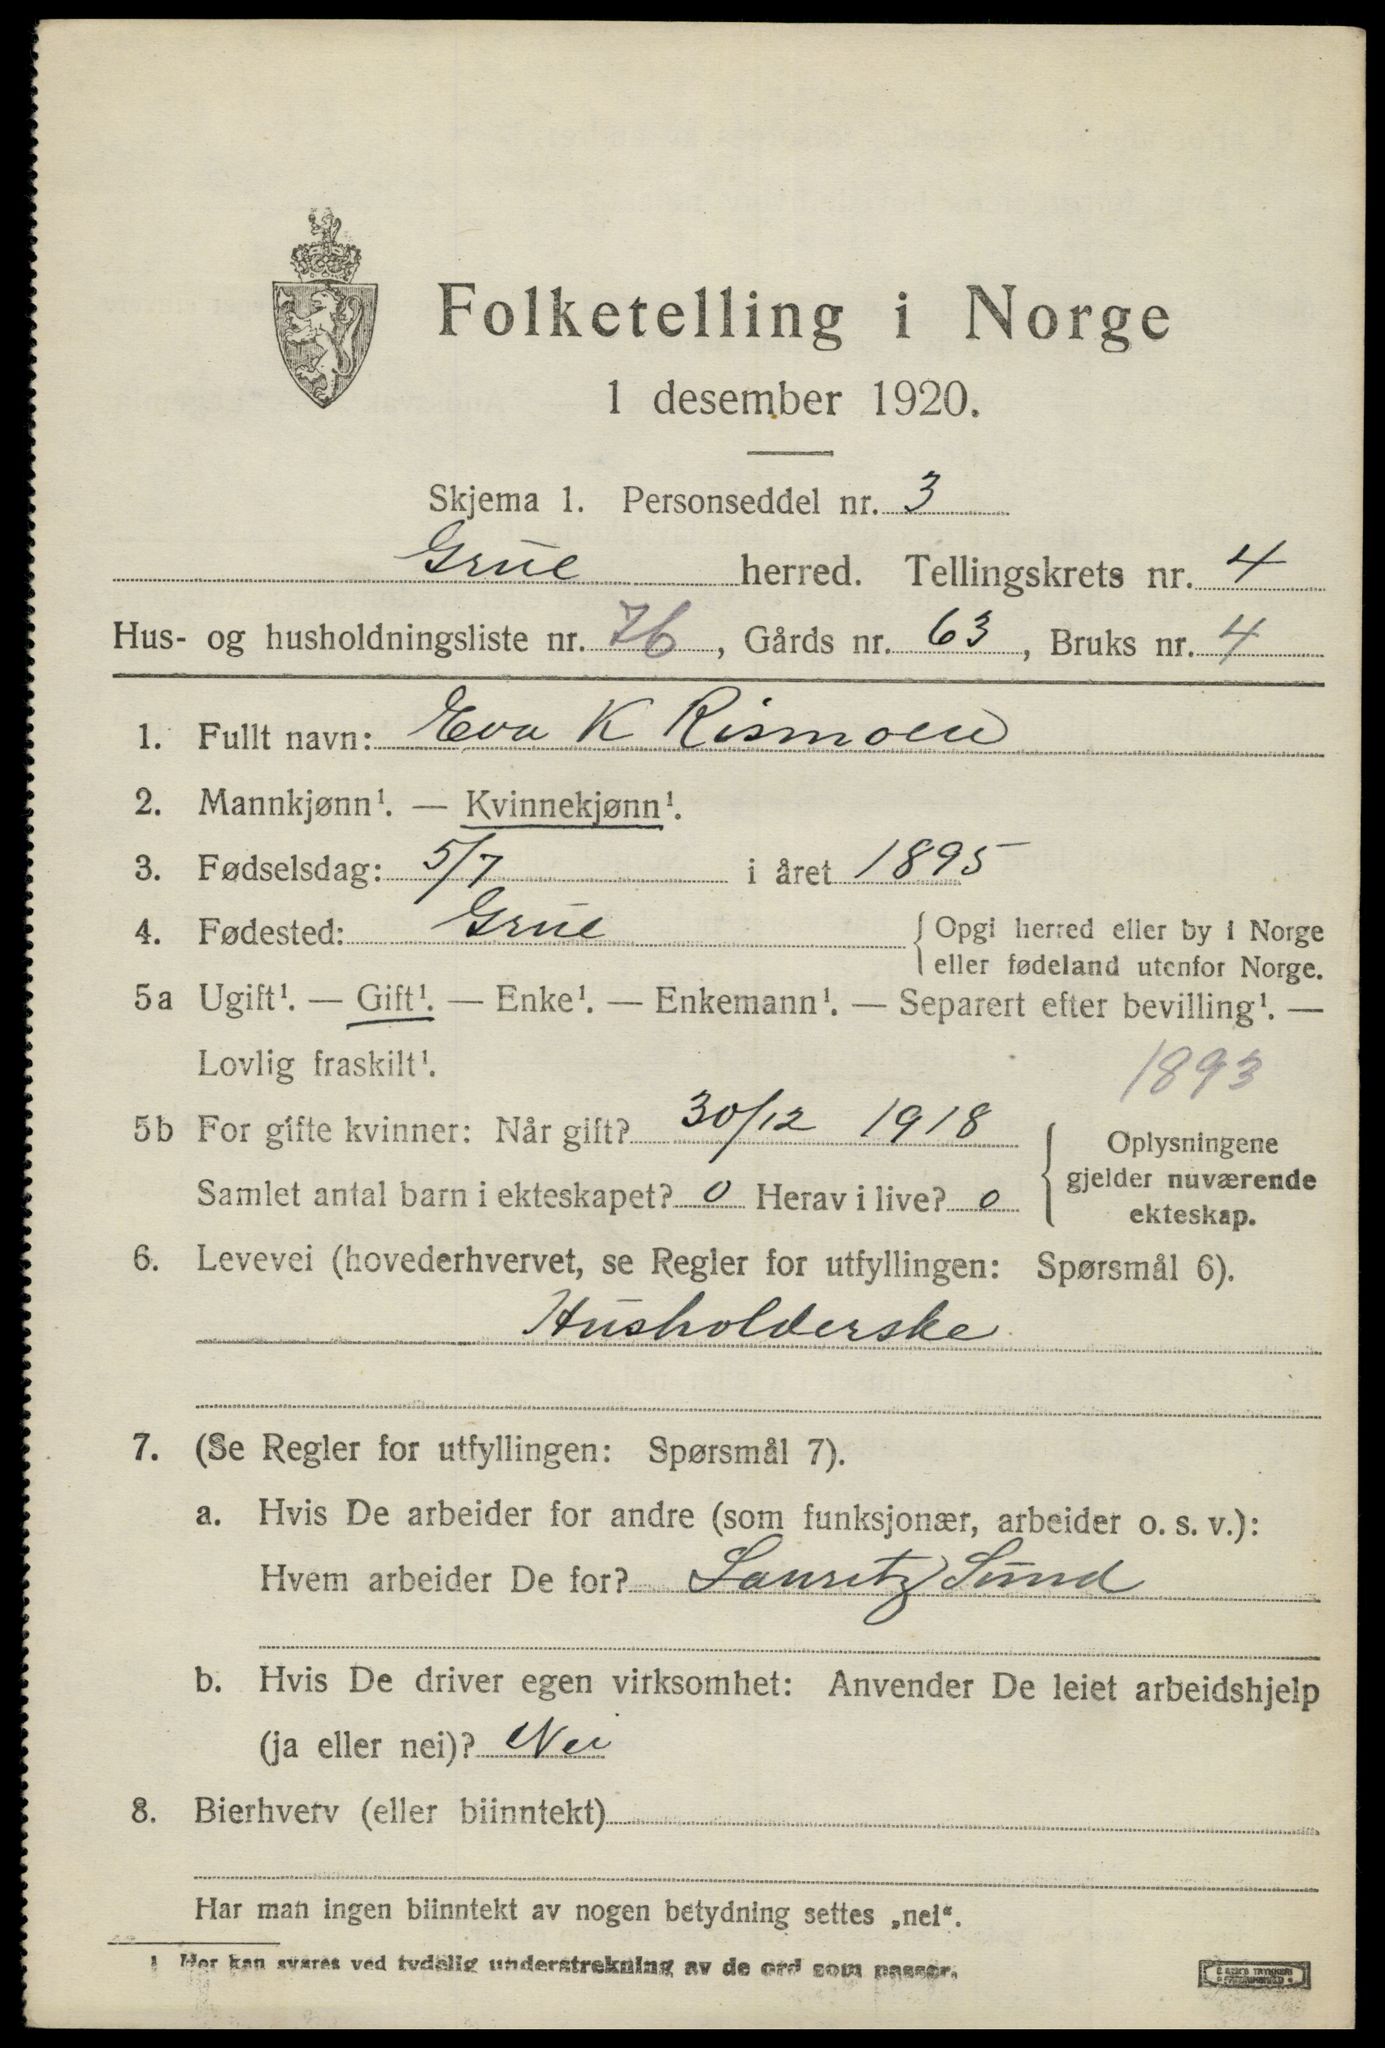 Folketelling i Norge
1 desember 1920.
Skjema 1. Personseddel nr. 3
Grue herred. Tellingskrets nr. 4
Hus- og husholdningsliste nr. 76, Gårds nr. 63, Bruks nr. 4
1. Fullt navn: Eva K Rismoen
2. Mannkjønn¹. — Kvinnekjønn¹.
3. Fødselsdag: 5/7 i året 1895
4. Fødested: Grue { Opgi herred eller by i Norge
eller fødeland utenfor Norge.
5a Ugift¹. — Gift¹. — Enke¹. — Enkemann¹. — Separert efter bevilling¹. —
Lovlig fraskilt¹.
1893
5b For gifte kvinner: Når gift? 30/12 1918
Samlet antal barn i ekteskapet? 0 Herav i live? 0
{ Oplysningene
gjelder nuværende
ekteskap.
6. Levevei (hovederhvervet, se Regler for utfyllingen: Spørsmål 6).
Husholderske
7. (Se Regler for utfyllingen: Spørsmål 7).
a. Hvis De arbeider for andre (som funksjonær, arbeider o. s. v.):
Hvem arbeider De for? Lauritz Sund
b. Hvis De driver egen virksomhet: Anvender De leiet arbeidshjelp
(ja eller nei)? Nei
8. Bierhverv (eller biinntekt)
Har man ingen biinntekt av nogen betydning settes „nei“.
1 Her kan svares ved tydelig understrekning av de ord som passer.